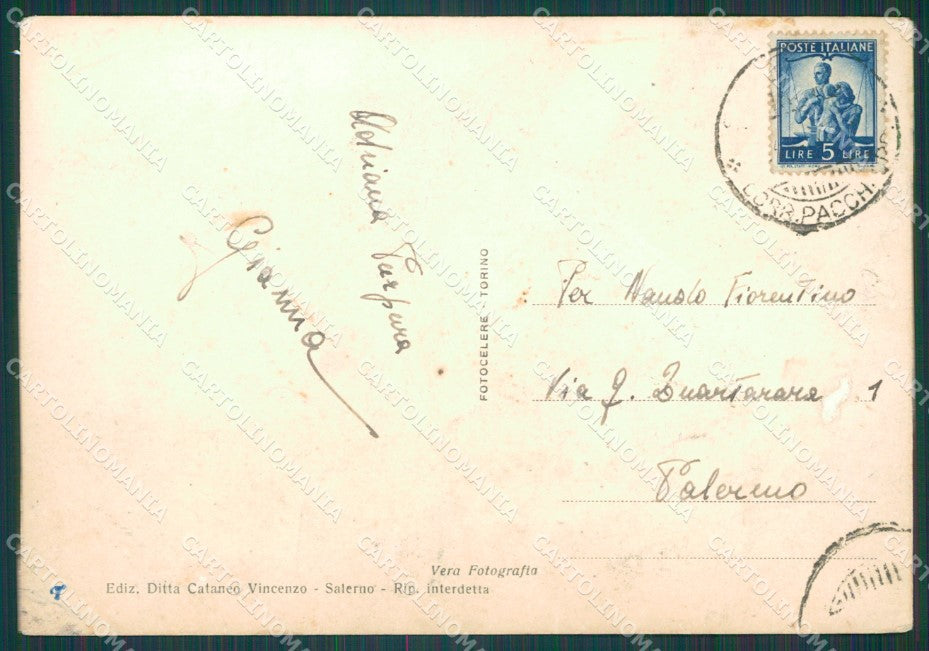 POSTE ITALIANE
LIRE 5 LIRE
CORR. PACCHI
Adriana Purpura
Gianna
FOTOCELERE TORINO
Per Fiorentino
Via G. Quartararo 1
Palermo
Vera Fotografia
Ediz. Ditta Cataneo Vincenzo - Salerno - Rip. interdetta
CARTOLINOMANIA